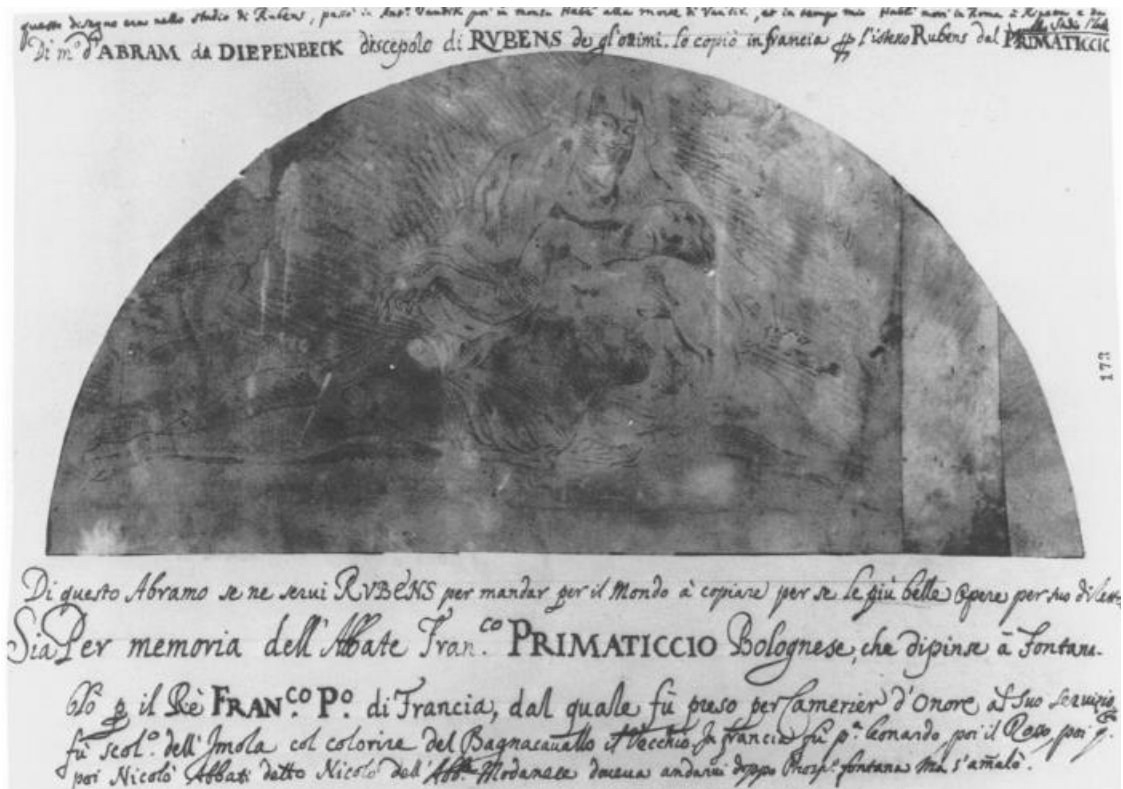 questo disegno era nello studio di Rubens, passò in Ant.º Vandik poi in alla morte di Vandik, et in tempo mio morì in Roma à Ripetta
Di m.º d'ABRAM da DIEPENBECK discepolo di RVBENS de gl'ottimi. lo copiò in francia l'istesso Rubens dal PRIMATICCIO
173
Di questo Abramo se ne serui RVBENS per mandar per il Mondo à copiare per se le più belle opere per suo
Sia Per memoria dell'Abbate Fran.co PRIMATICCIO Bolognese, che dipinse à Fontane-
blò il Rè FRAN.CO P.º di Francia, dal quale fù preso per Camerier d'onore al suo seruizio
fù scol.º dell'Imola col colorire del Bagnacauallo il Vecchio. In francia fù p.º Leonardo, poi il Rosso, poi
poi Nicolò Abbati detto Nicolò dell'Abb.e Modanese doueua andarui doppo Prosp.º fontana ma s'amalò.